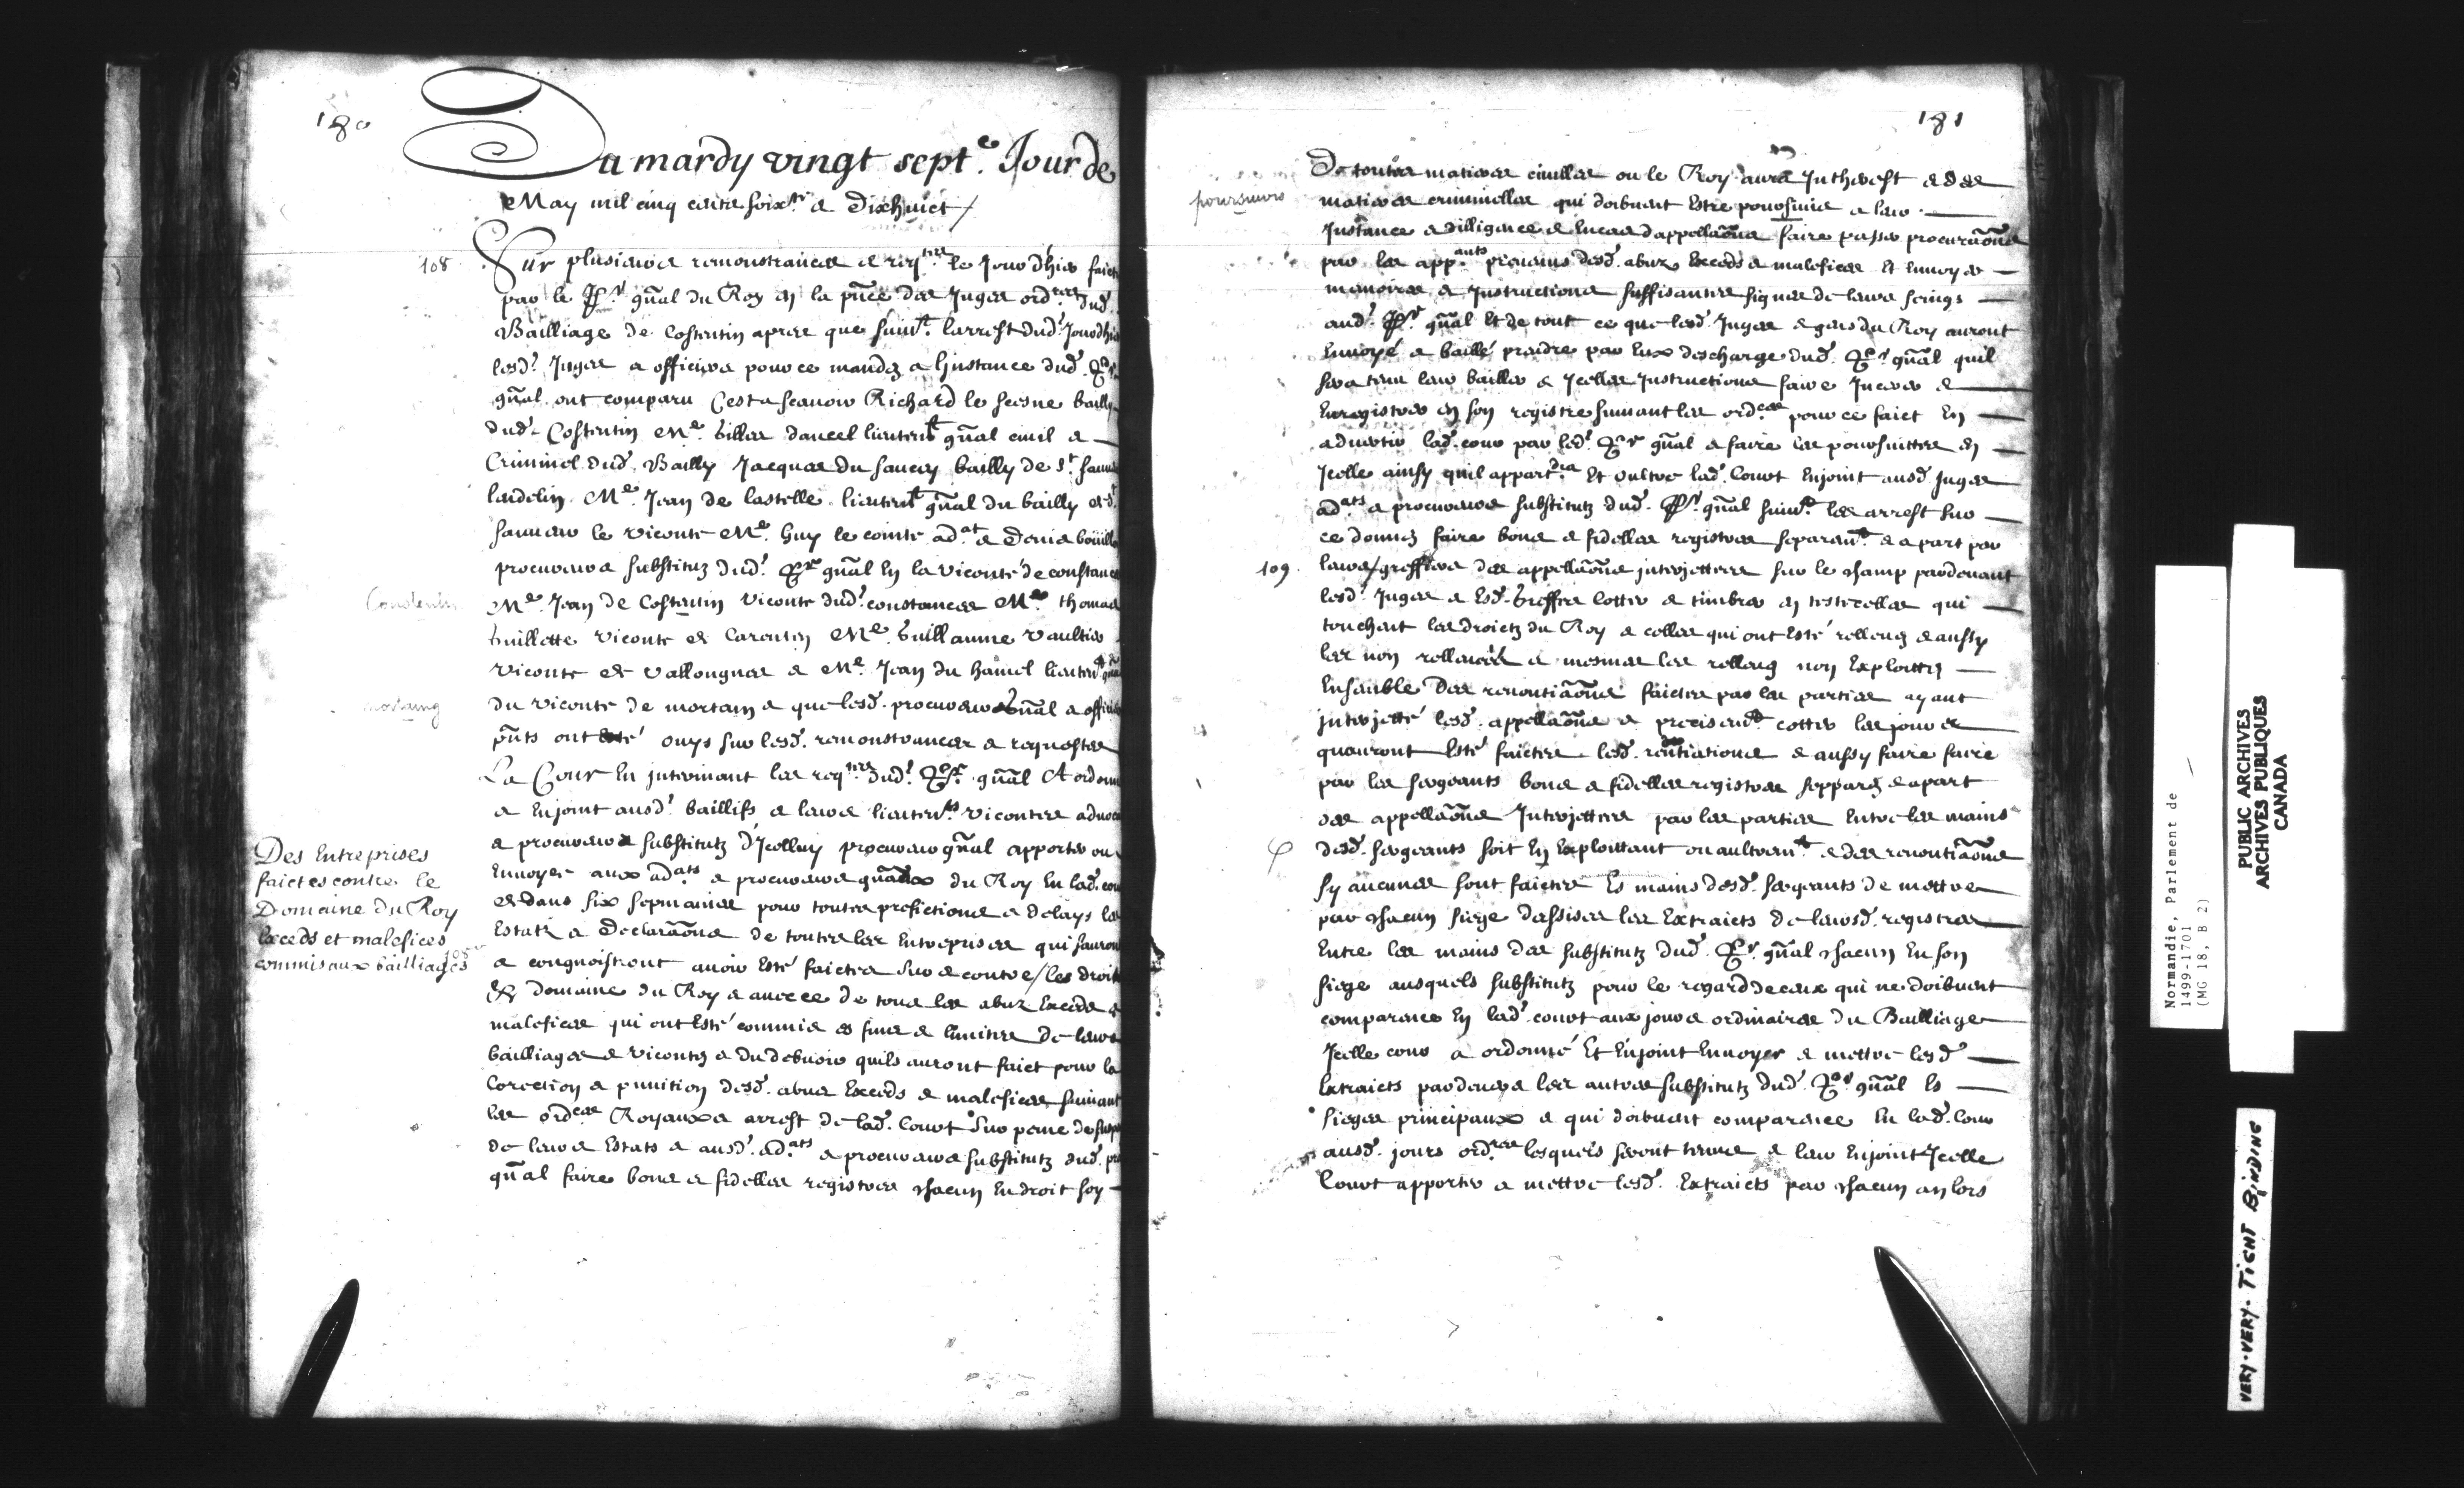 180
Du mardy vingt sept.e Jour de
May mil cinq cents soix.te & dixhuict /
108
Sur plusieurs remonstrances & req.tes le Jourdhier faictes
par le Pr. gñal du Roy en la pñce des Juges ord.res dud.
Bailliage de Costentin apres que suiv.t larrest dud. Jourdhier
lesd. Juges & officiers pour ce mandez a linstance dud. Pr.
gñal ont comparu Cestascavoir Richard le bailly
dud. Costentin Me. Gilles dancel lieuten.t gñal civil &
Criminel dud. Bailly Jacques du saucey bailly de St. sauveur
landelin Me. Jean de lastelle lieuten.t gñal du bailly de St.
sauveur le viconte Me. Guy le comte ad.at & Denis
procureurs substitutz dud. Pr gñal en la viconté de constances
Me. Jean de Costentin viconte dud. constances Me. thomas
Guillotte viconte de Carenten Me. Guillaume vaultier
viconte de vallongnes & Me. Jean du hamel lieuten.t gñal
du viconte de mortain & que lesd. procureur gñal & officiers
pñts ont esté ouys sur lesd. remonstrances & requestes
La Cour en interinant les req.tes dud. Pr. gñal A ordonné
& Enjoint ausd. baillifs & leurs lieuten.ts vicontes advocats
& procureurs substitutz dIcelluy procureur gñal apporter ou
Envoyer aux ad.ats & procureurs gñaux du Roy En lad. cour
dedans six sepmaines pour toutes prefictions & delays les
Estatz & declaraõns de toutes les Entreprises qui sauront
& congnoistront avoir Esté faictes sur & contre / les droits
& domaine du Roy & avec ce de tous les abuz Exceds &
malefices qui ont Esté commis es fins & limites de leurs
bailliages & vicontez & du debvoir quils auront faict pour la
Corection & punition desd. abus Exceds & malefices suivant
les ord.ces Royaux & arrest de lad. Court Sur peine de
de leurs Estats & ausd. ad.ats & procureurs substitutz dud. pr
gñal faire bons & fidelles registres chacun En droit soy
Des Entreprises
faictes contre le
Domaine du Roy
Exceds et malefices
commis aux bailliages
108
Constentin
mortaing
181
De toutes matieres civilles ou le Roy aura Intherest & des
matieres criminelles qui doibvent Estre poursuivis a leur
Instance & dilligence & lieues dappellaõns faire passer procuraõns
par les app.ants prevenus desd. abuz Exceds & malefices Et Envoyer
memoires & Instructions suffisantes signes de leurs seings
aud. Pr. gñal Et de tout ce que lesd. Juges & gens du Roy auront
Envoyé & baillé prendre par Eux descharge dud. Pr. gñal quil
sera tenu leur bailler & Icelles Instructions faire Incerer &
Enregistrer en son registre suivant les ord.ces pour ce faict En
advertir lad. cour par led. Pr gñal & faire les poursuittes en
Icelle ainsy quil appart.dra Et oultre lad. Court Enjoint ausd. Juges
ad.ats & procureurs substitutz dud. Pr. gñal suiv.t les arrest sur
ce donnez faire bons & fidelles registres separem.t & a part par
leurs / greffiers des appellaõns interjettees sur le champ pardevant
lesd. Juges & Esd. Greffes cotter & timbrer en teste celles qui
touchent les droictz du Roy & celles qui ont Esté rellevez & aussy
les non rellevees & mesmes les rellevez non Exploitez
Ensemble des renontiaõns faictes par les parties ayant
interjetté lesd. appellaõns & precisem.t cotter les jours
quauront Esté faictes lesd. rentiations & aussy faire faire
par les sergeants bons & fidelles registres sepparez & apart
des appellaõns Interjettees par les parties Entre les mains
desd. sergeants soit En Exploittant ou aultrem.t & des renontiaõns
sy aucunes sont faictes Es mains desd. sergeants de mettre
par chacun siege dassises les Extraicts de leursd. registres
Entre les mains des substitutz dud. Pr. gñal chacun En son
siege ausquels substitutz pour le regard de ceux qui ne doibvent
comparence En lad. court aux jours ordinaires du Bailliage
Icelle cour a ordonné Et Enjoint Envoyer & mettre lesd.
Extraicts pardevers les autres substitutz dud. Pr. gñal Es
sieges principaux & qui doibvent comparence En lad. Cour
ausd. jours ord.res lesquels seront tenus & leur Enjoint Icelle
Court apporter & mettre lesd. Extraicts par chacun an lors
poursuivre
109
Normandie, Parlement de
1499-1701
(MG 18, B 2)
PUBLIC ARCHIVES
ARCHIVES PUBLIQUES
CANADA
VERY-VERY-TIGHT BINDING